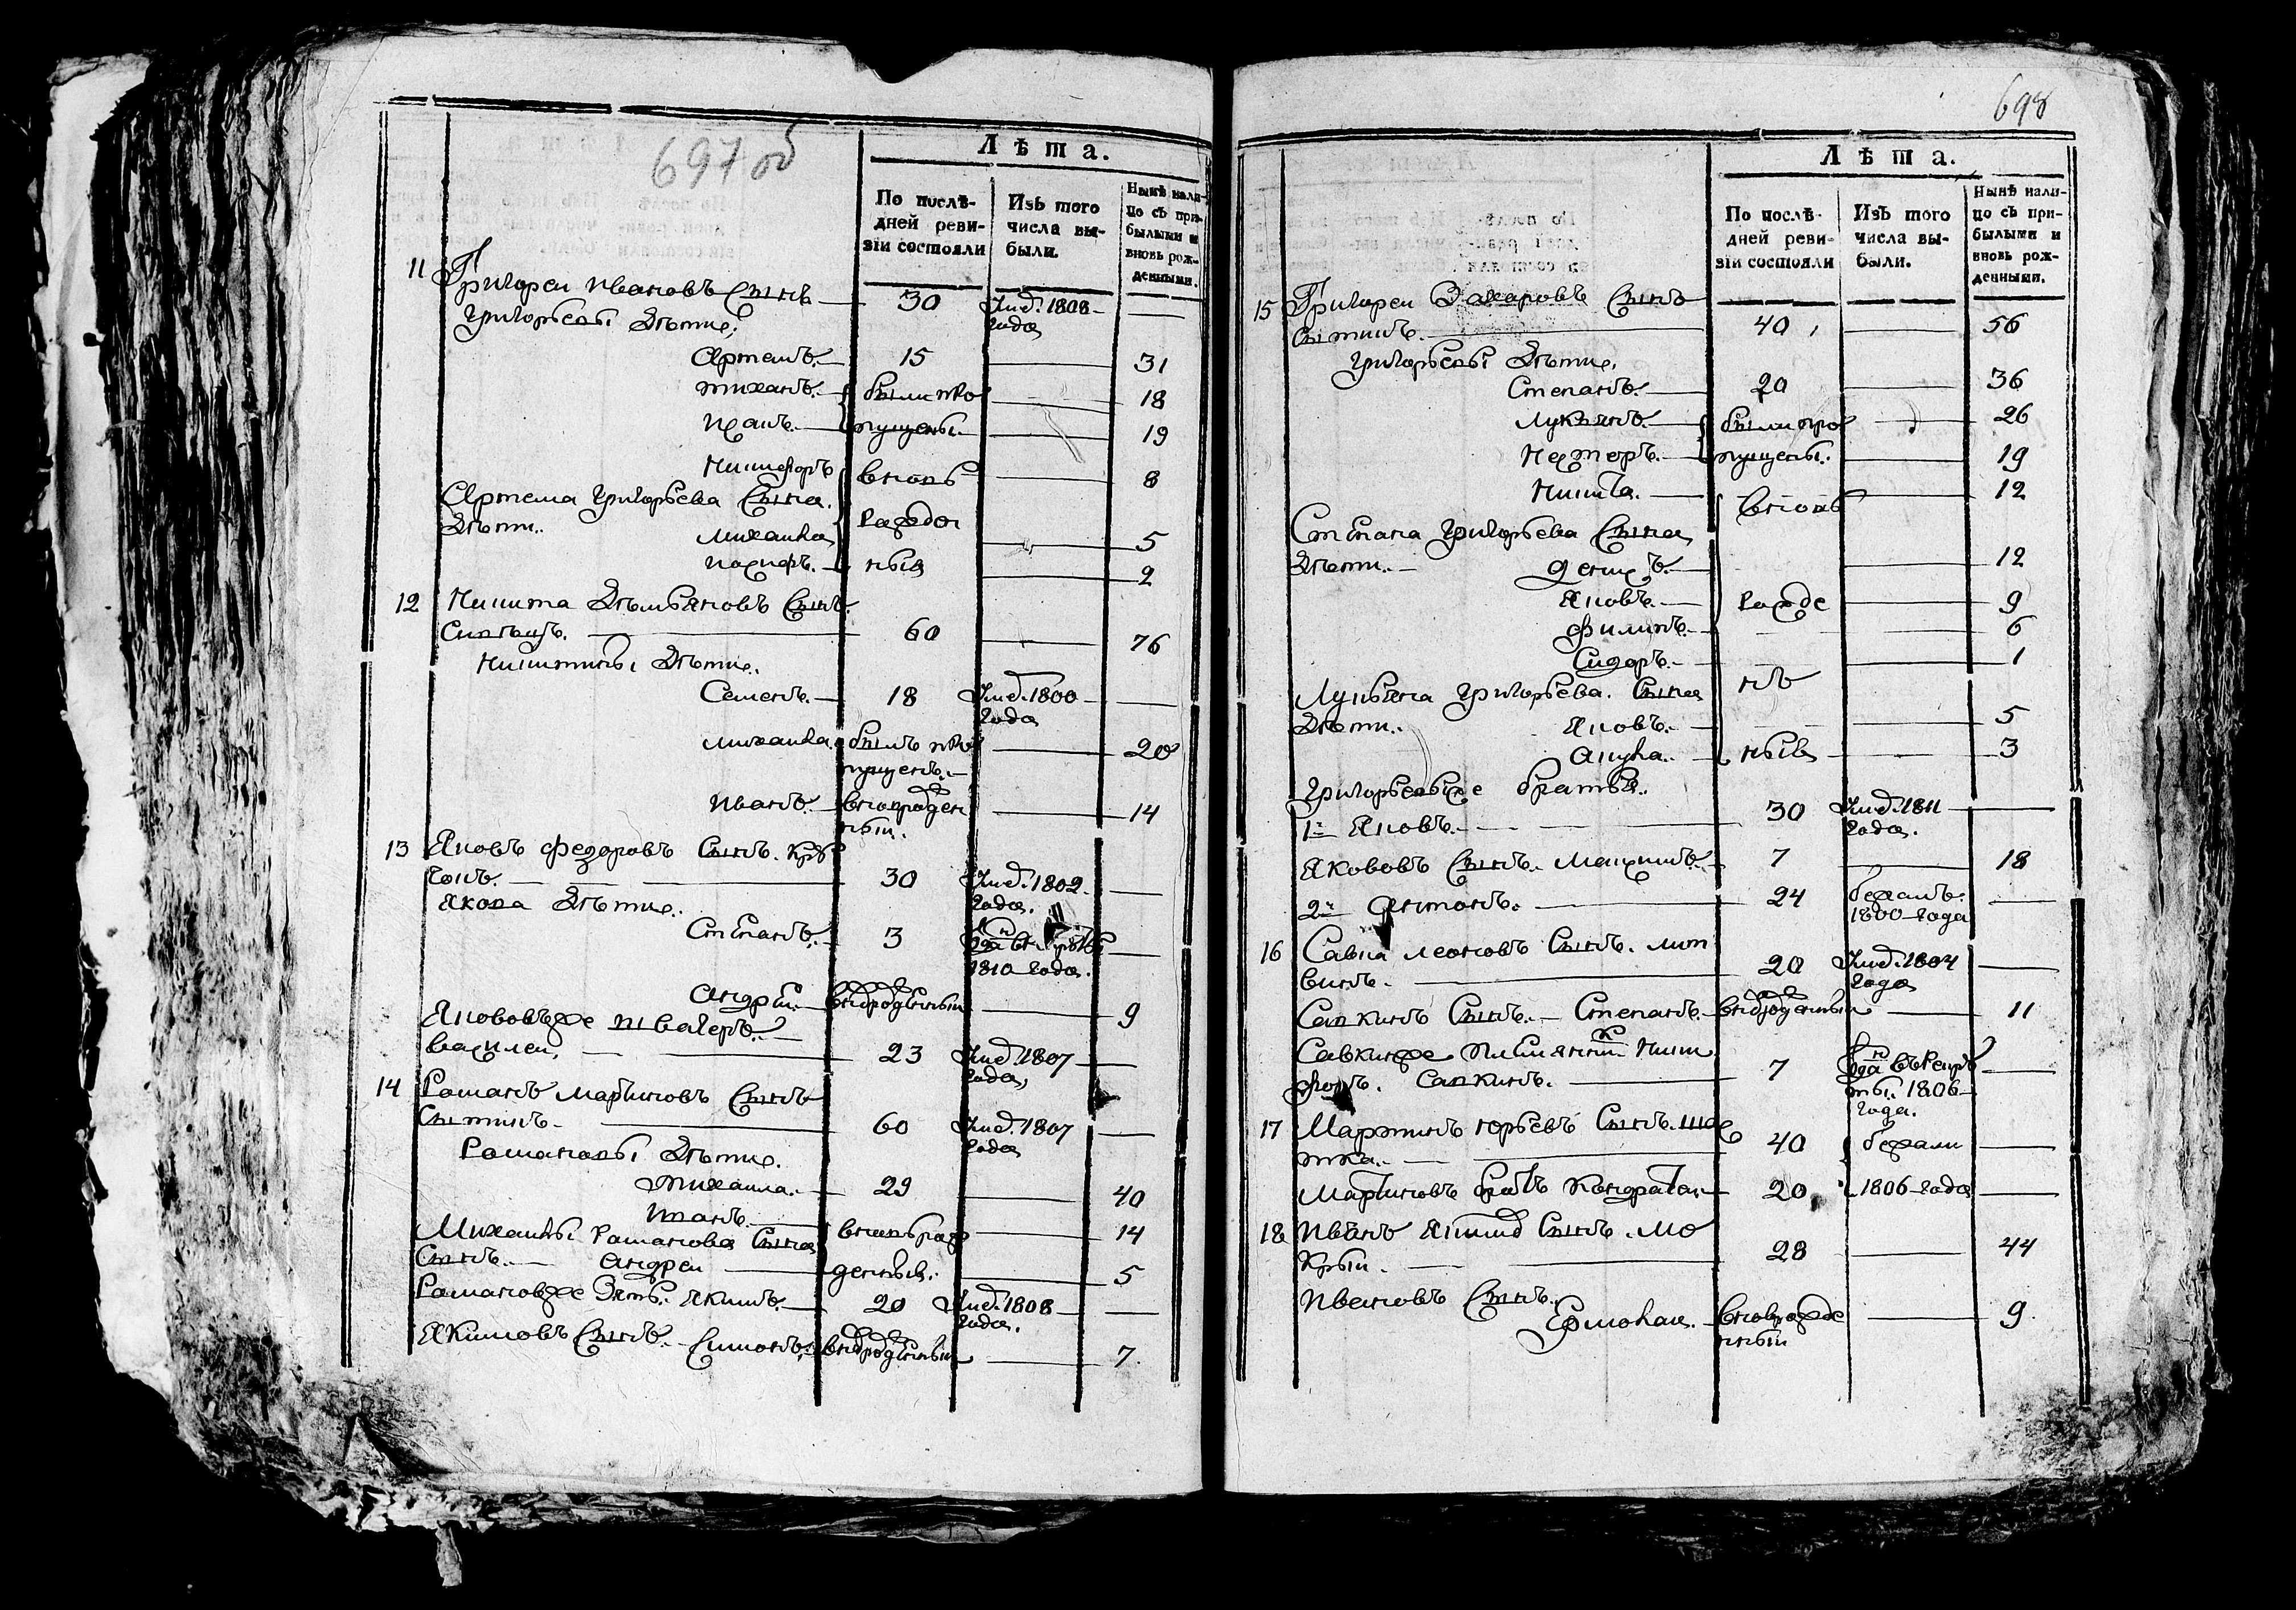 697 об
Лѣта.
По послѣдней ревизіи состояли
Изъ того числа выбыли.
Нынѣ налицо съ прибылыми и вновь рожденными.
11 Григореи Ивановъ Сынъ — 30 Умѣ. 1808 года —
Григорьевы Дѣти:
Артемъ. — 15 — 31
тиханъ. — были про — 18
— пущены. — 19
Никифоръ вновь — 8
Артема Григорьева Сына.
Дѣти. Михаила рожден — 5
Иосифъ. — ныя — 2
12 Никита Емельяновъ Сынъ.
— 60 — 76
Никитины Дѣти.
Семенъ. — 18 Умѣ. 1800 года —
Михаила. былъ про — 20
пущенъ. —
Иванъ. — вновьрожден — 14
ныи.
13 Яковъ Федоровъ Сынъ.
— 30 Умѣ. 1802 года. —
Якова Дѣти.
Степанъ. 3
1810 года. —
Андреи. — вновьрожденныи — 9
Яковъже шваегръ. —
Василеи, — 23 Умѣ. 1807 года, —
14 Романъ Мартиновъ Сынъ
Сытинъ. — 60 Умѣ. 1807 года —
Романовы Дѣти.
Михаила. — 29 — 40
— 14
Михаилы Романова Сына вновьрож
Сынъ. — Андреи — денныя. — 5
Романовже Зять. Якимъ. — 20 Умѣ. 1808 года. —
Якимовъ Сынъ. — Симонъ: вновьрожденныи — 7.
698
Лѣта.
По послѣдней ревизіи состояли
Изъ того числа выбыли.
Нынѣ налицо съ прибылыми и вновь рожденными.
15 Григореи Захаровъ Сынъ
Сытинъ. — 40 — 56
Григорьевы Дѣти.
Степанъ. — 20 — 36
Лукьянъ. — были про — 26
Нестеръ. — пущены. — 19
Никита. — вновь — 12
Степана Григорьева Сына
Дѣти. — Денисъ. — 12
Яковъ. — рожде — 9
Филипъ. — 6
Сидоръ. — 1
Лукьяна Григорьева. Сына нъ
Дѣти. Яковъ. — 5
— ныя — 3
Григорьевыже братья.
1й Яковъ. — 30 Умѣ. 1811 года. —
Якововъ Сынъ. Максимъ. — 7 — 18
2й Антонъ. — 24 бежалъ. 1800 года —
16 Савка Леоновъ Сынъ. Лит
винъ. — 20 Умѣ. 1804 года —
Савкинъ Сынъ. — Степанъ. — вновьрожденныи — 11
Савкинже Племянникъ Ники
форъ. Савкинъ. — 7 1806 года. —
17 Мартинъ Юрьевъ Сынъ.
— 40 бежали —
Мартиновъ братъ Кондратеи — 20 1806 года —
18 Иванъ Сынъ. Мо
крыи. — 28 — 44
Ивановъ Сынъ.
Ермолаи. — вновьрожде — 9.
нныи